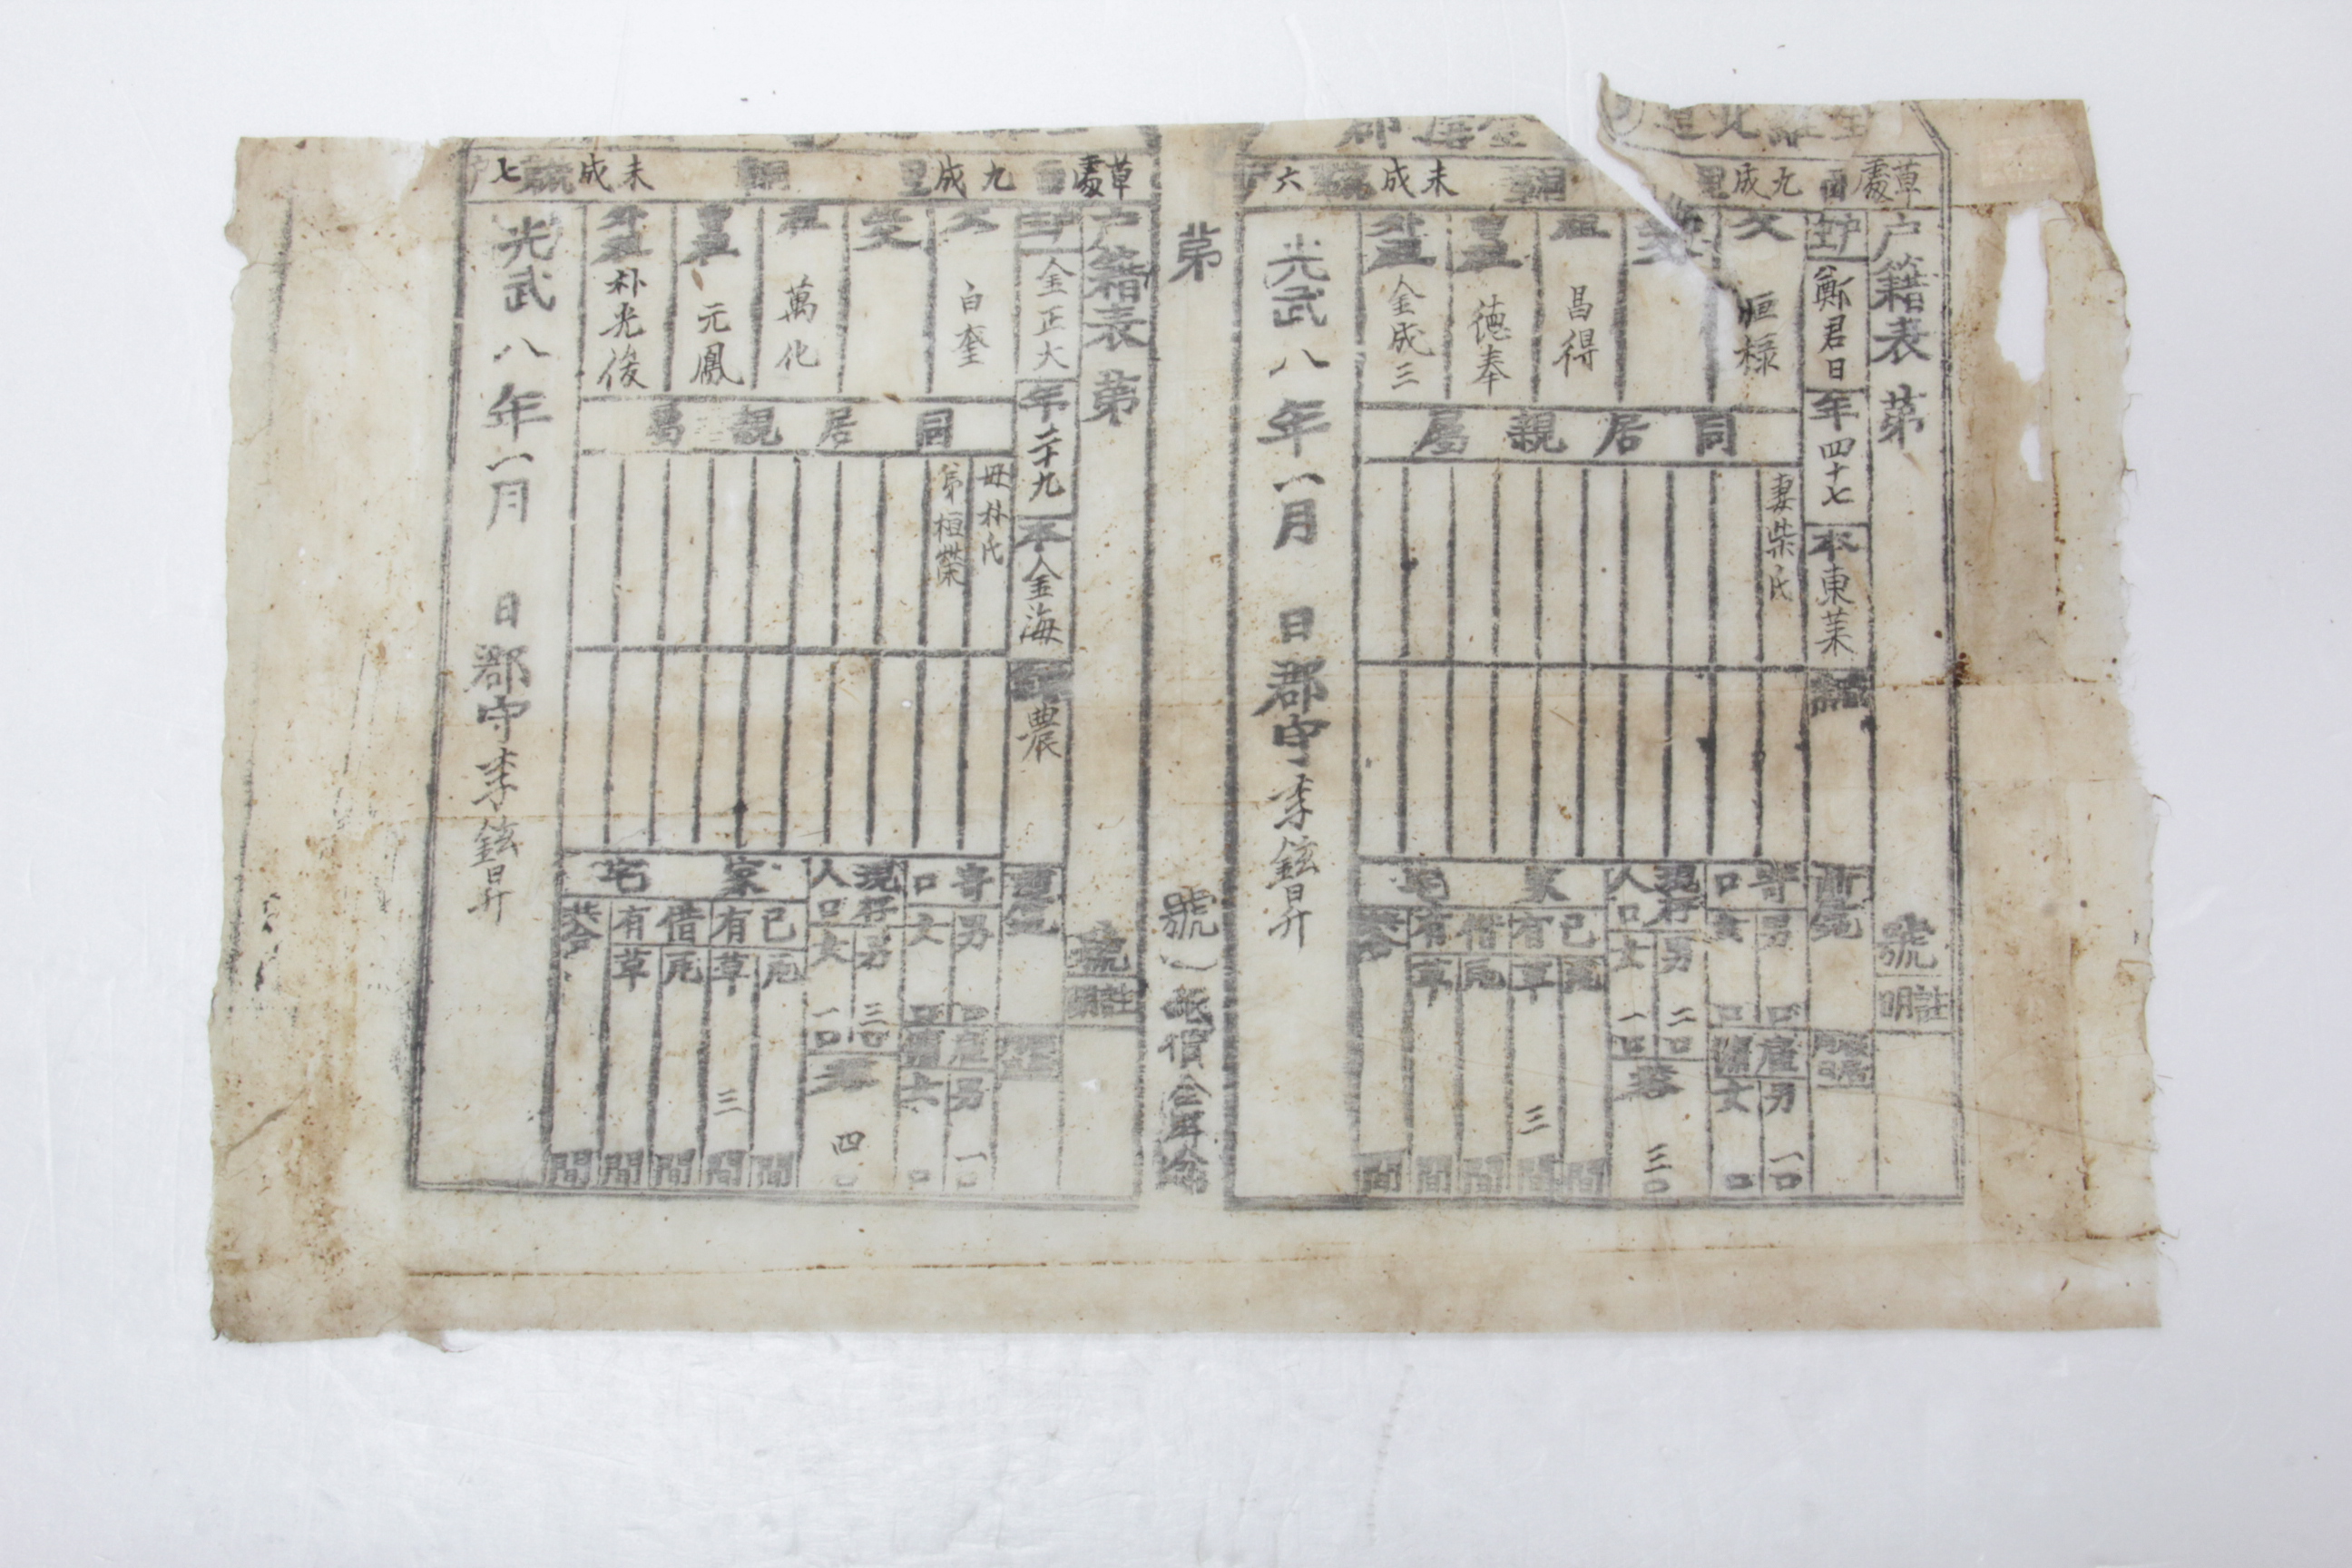 全羅北道
金堤郡
草處面九成里
未成統六戶
戶籍表 第
號
證明
戶主
鄭君日
年四十七
本東萊
職業
前居地
移居月
父
恒祿
生父
祖
昌得
曾祖
德奉
外祖
金成三
同居親屬
妻柴氏
寄口
男 口
女 口
雇傭
男 一口
女 口
現存人口
男 二口
女 一口
共合
三口
家宅
己有
瓦 間
草 三 間
借有
瓦 間
草 間
共合 間
光武八年一月 日郡守李鉉昇
第
號
紙價
草處面九成里
未成統七戶
戶籍表 第
號
證明
戶主
金正大
年二十九
本金海
職業
農
父
白奎
生父
祖
萬化
曾祖
元鳳
外祖
朴光俊
同居親屬
母朴氏
弟桓榮
寄口
男 口
女 口
雇傭
男 一口
女 口
現存人口
男 三口
女 一口
共合
四口
家宅
己有
瓦 間
草 三 間
借有
瓦 間
草 間
共合 間
光武八年一月 日郡守李鉉昇